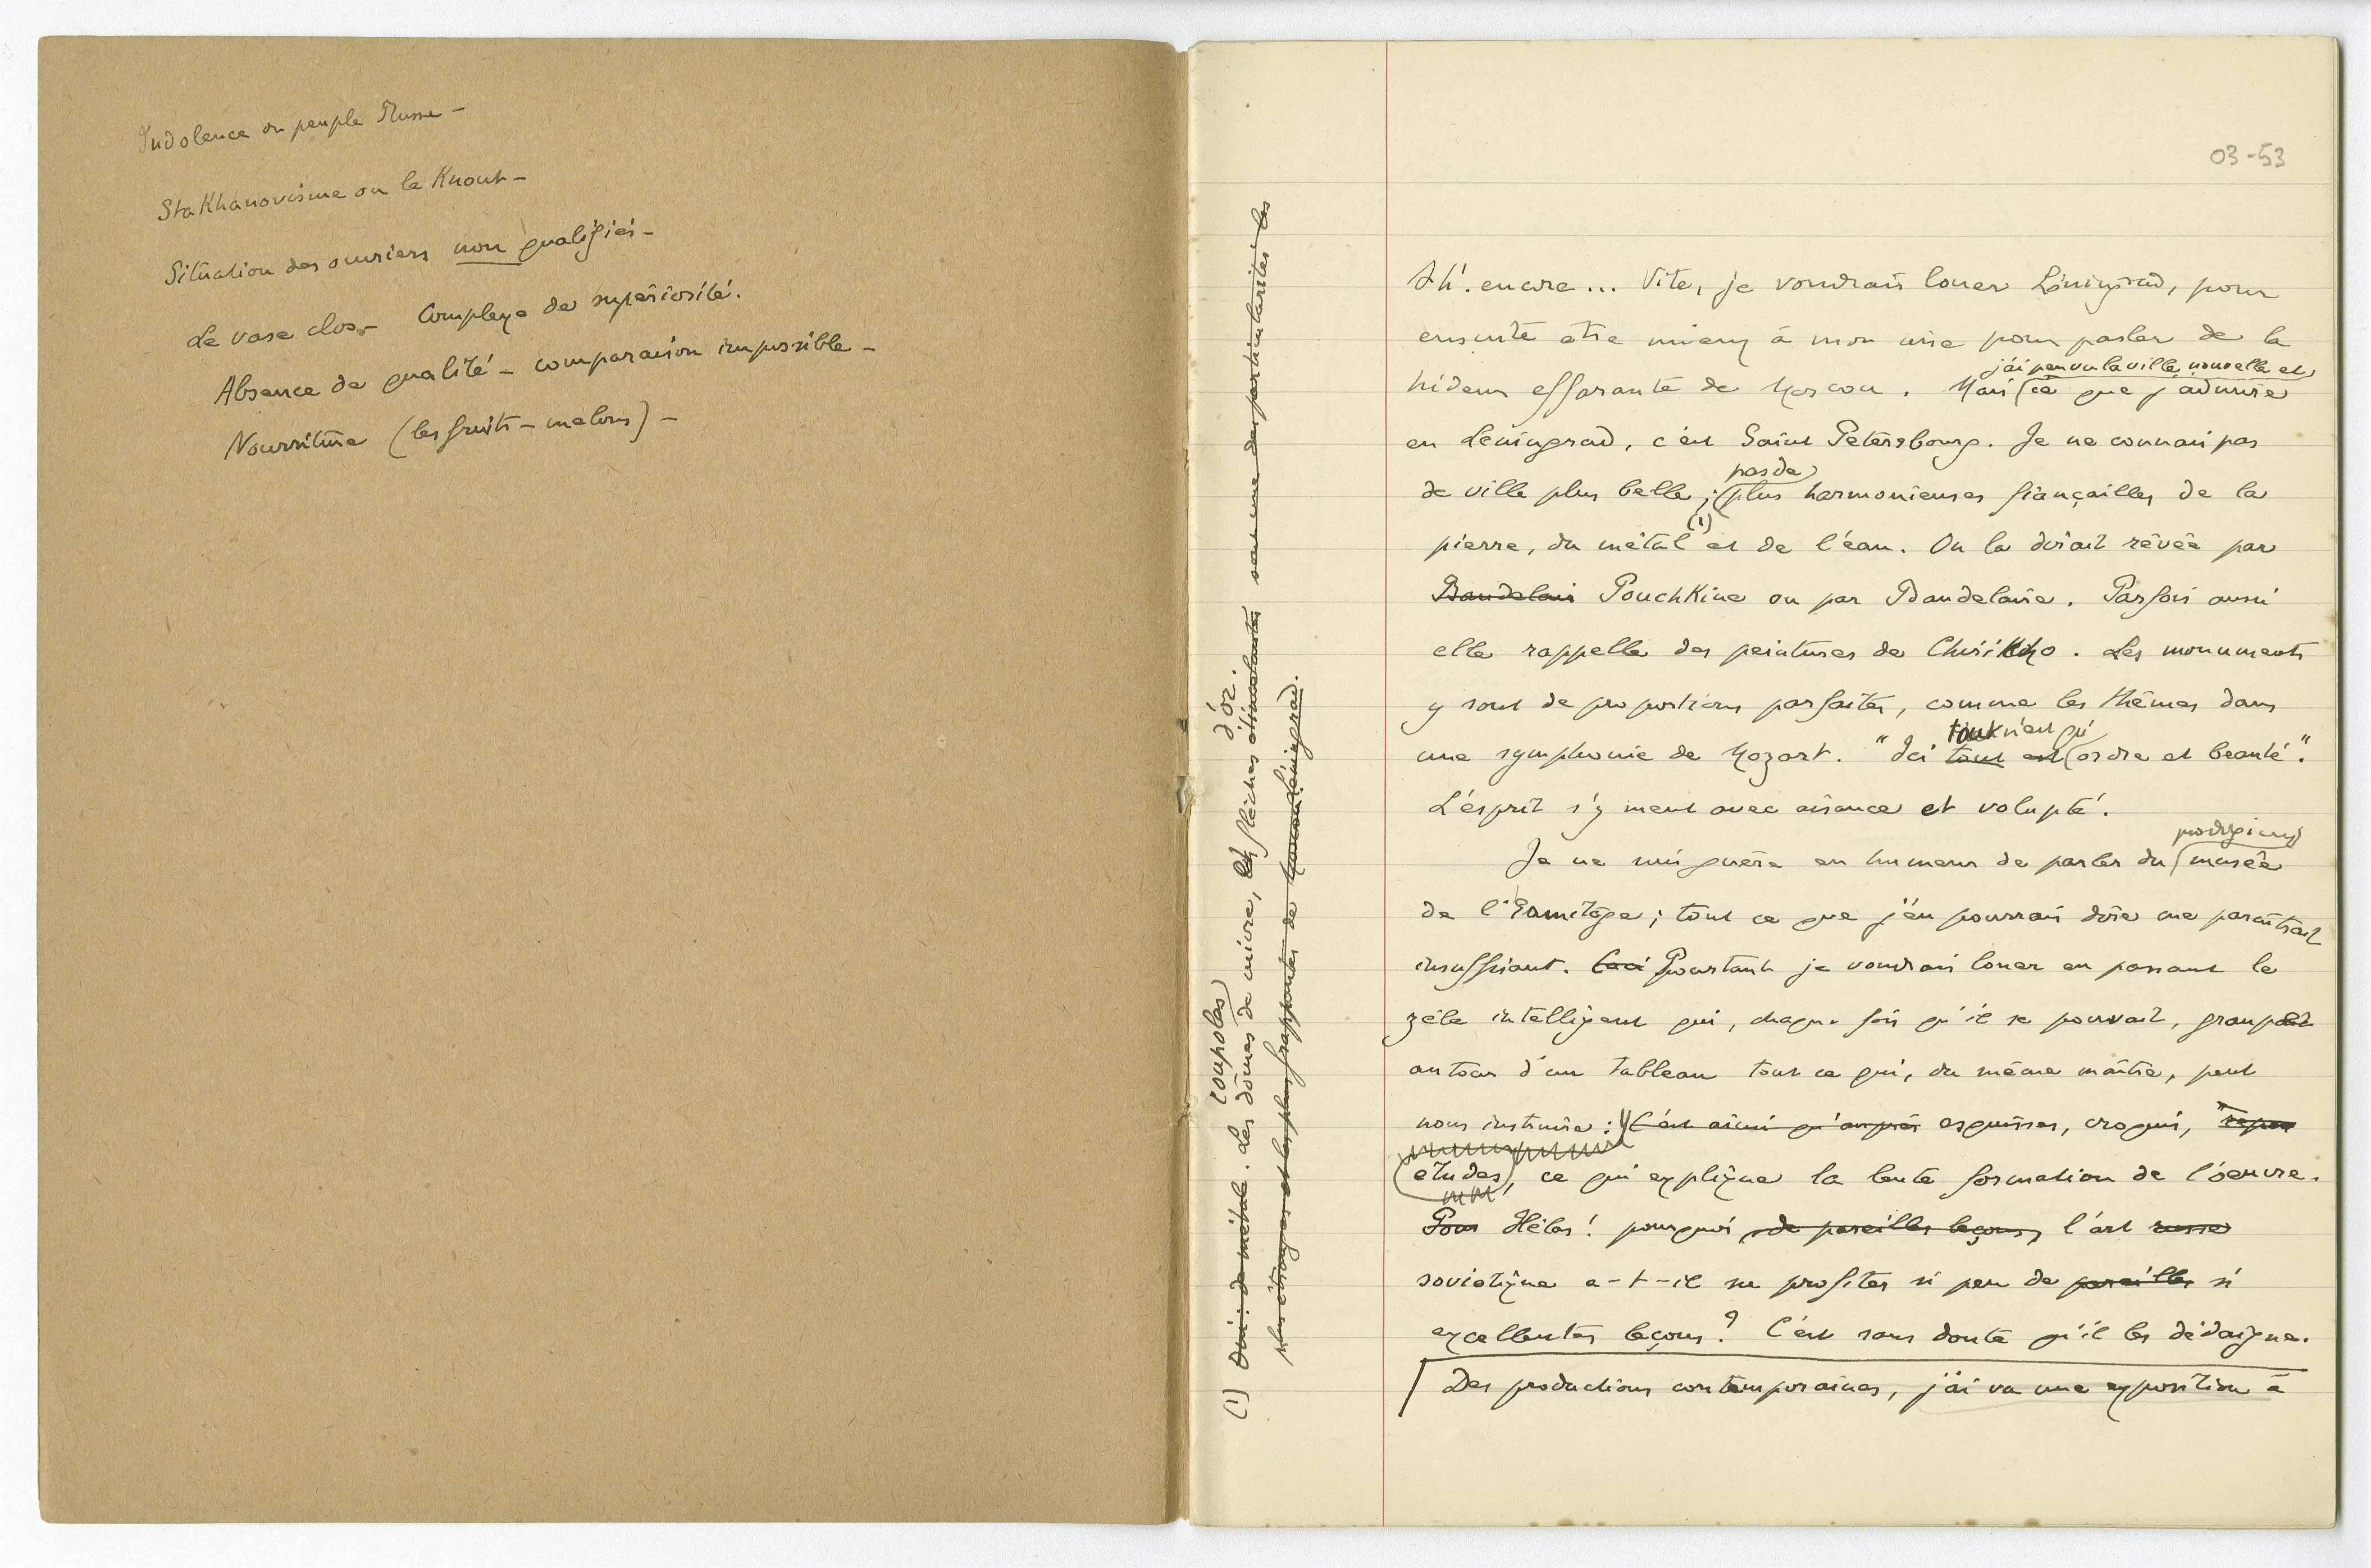 Indolence du peuple Russe –
StaKhanovisme ou le Knout –
Situation des ouvriers non qualifiés –
Le vase clos – Complexe de supériorité.
Absence de qualité – comparaison impossible –
Nourriture (les fruits – melons) –
03-53
Ah! encore... Vite, je voudrais louer Léningrad, pour
ensuite être mieux à mon aise pour parler de la
j'ai peu vu la ville nouvelle et
hideur effarante de Moscou. Mais ce que j'admire
en Leningrad, c'est Saint Petersbourg. Je ne connais pas
pas de
de ville plus belle; plus harmonieuses fiançailles de la
(1)
pierre, du métal et de l'eau. On la dirait rêvée par
Baudelair Pouchkine ou par Baudelaire. Parfois aussi
elle rappelle des peintures de Chirico. Les monuments
y sont de proportions parfaites, comme les thêmes dans
tout n'est qu'
une symphonie de Mozart. "Ici tout est ordre et beauté".
L'esprit s'y meut avec aisance et volupté.
prodigieux
Je ne suis guère en humeur de parler du musée
de l'Ermitage; tout ce que j'en pourrais dire me paraîtrait
insuffisant. Ceci Pourtant je voudrais louer en passant le
zèle intelligent qui, chaque fois qu'il se pouvait, groupait
autour d'un tableau tout ce qui, du même maître, peut
nous instruire: C'est ainsi qu'auprès esquisses, croquis,
études, ce qui explique la lente formation de l'œuvre.
Pour Hélas! pourquoi de pareilles leçons, l'art russe
soviétique a-t-il su profiter si peu de pareilles si
excellentes leçons? C'est sans doute qu'il les dédaigne.
Des productions contemporaines, j'ai vu une exposition à
coupoles
d'or.
(1) Oui: de métal. Les dômes de cuivre, et flèches étincelantes sont une des particularités les
plus étranges et les plus frappantes de Moscou Léningrad.